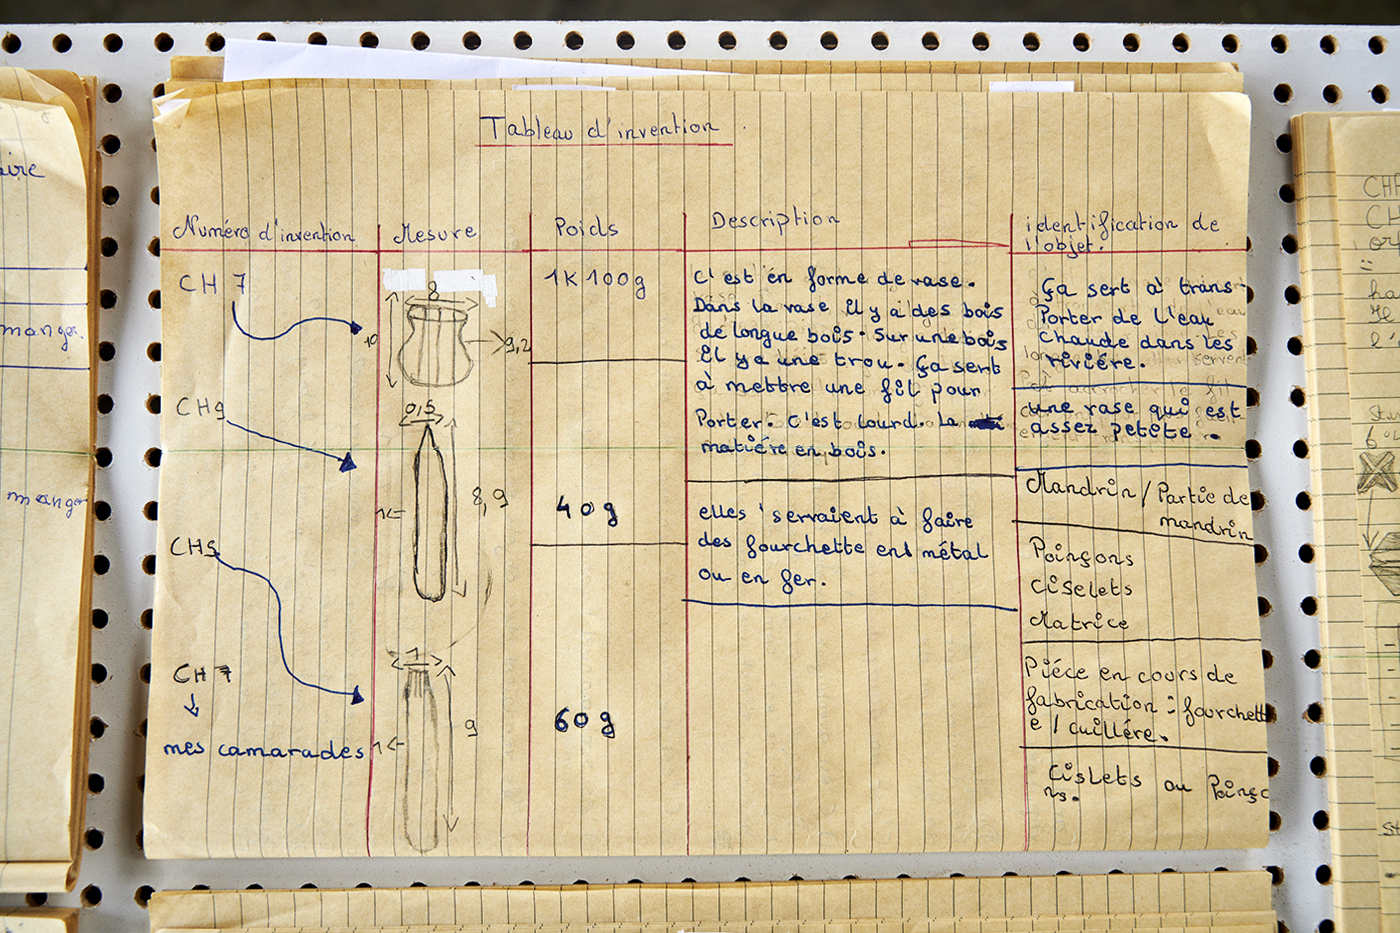 Tableau d'invention
Numéro d'invention
Mesure
Poids
Description
identification de
l'objet.
CH 7
8
10
9,2
1K 100g
C'est en forme de vase.
Dans la vase il y a des bois
de longue bois. Sur une bois
il y a une trou. Ça sert
à mettre une fil pour
Porter. C'est lourd. La
matiére en bois.
Ça sert à trans-
Porter de l'eau
chaude dans les
riviére.
une rase qui est
assez petète.
CH9
0,5
1
8,9
40g
elles servaient à faire
des fourchette en métal
ou en fer.
Mandrin / Partie de
mandrin
Poinçons
Ciselets
Matrice
CH5
1
1
9
60g
Piéce en cours de
fabrication : fourchett
e / cuillére.
Cislets ou Poinço
ns.
CH 7
mes camarades
aire
manger.
manger